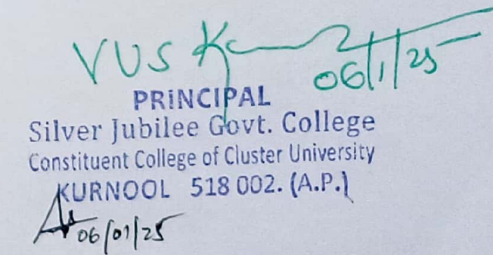 VUS
06/1/25
PRINCIPAL
Silver Jubilee Govt. College
Constituent College of Cluster University
KURNOOL 518 002. (A.P.)
06/01/25